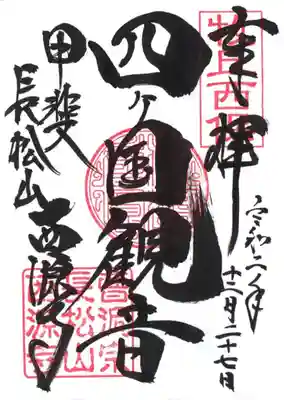 奉拝
令和二年
十二月二十七日
四ヶ國観音
甲斐
長松山
西源寺
曹洞宗
長松山
西源寺